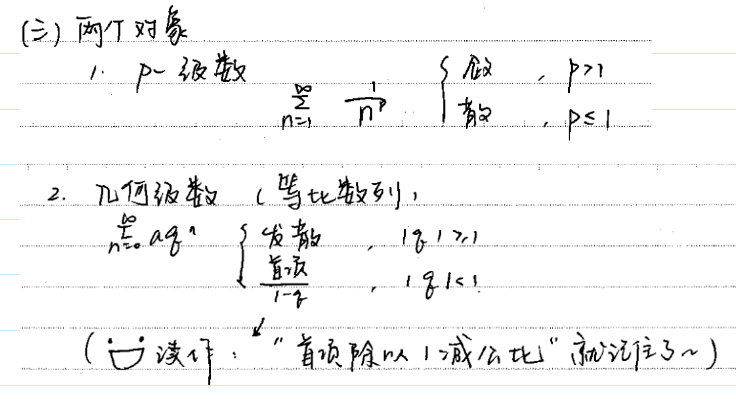 (三) 两个对象
1. p-级数 $\sum_{n=1}^{\infty} \frac{1}{n^p}$ { 敛, p>1
散, p≤1
2. 几何级数 (等比数列)
$\sum_{n=0}^{\infty} aq^n$ { 发散, |q|≥1
$\frac{首项}{1-q}$, |q|<1
(读作: "首项除以1减公比" 就记住了~)